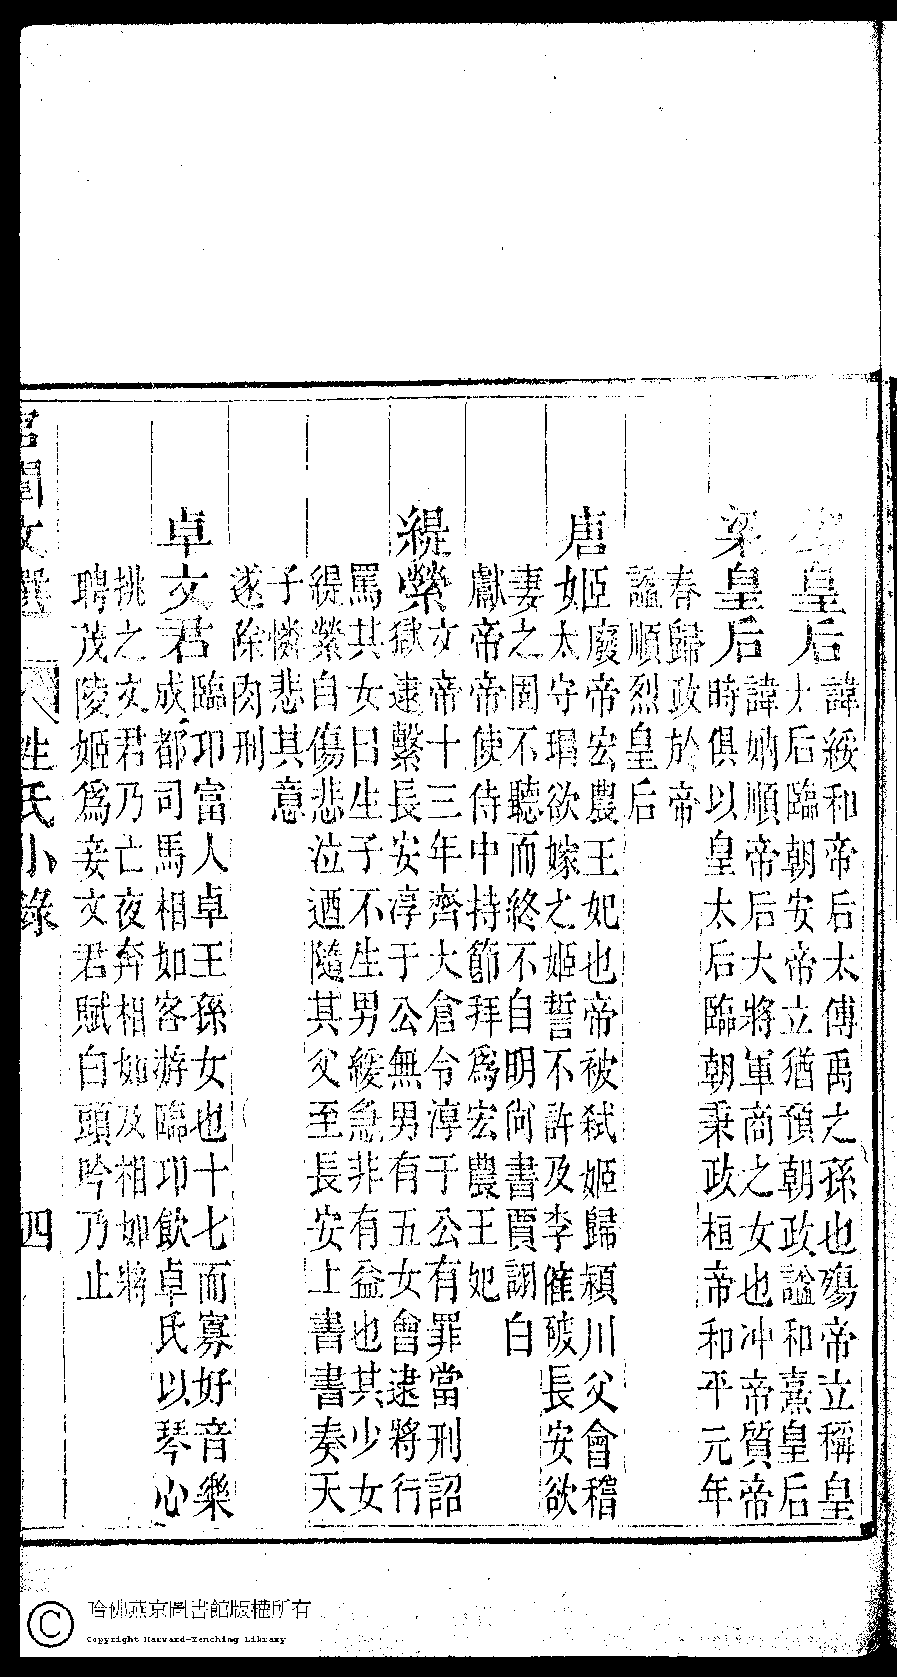 皇后諱綏和帝后太傅禹之孫也殤帝立稱皇
太后臨朝安帝立猶預朝政諡和熹皇后
梁皇后諱妠順帝后大將軍商之女也冲帝質帝
時俱以皇太后臨朝秉政桓帝和平元年
春歸政於帝
諡順烈皇后
唐姬廢帝宏農王妃也帝被弒姬歸潁川父會稽
太守瑁欲嫁之姬誓不許及李傕破長安欲
妻之固不聽而終不自明尚書賈詡白
獻帝帝使侍中持節拜爲宏農王妃
緹縈文帝十三年齊大倉令淳于公有罪當刑詔
獄逮繫長安淳于公無男有五女會逮將行
罵其女曰生子不生男緩急非有益也其少女
緹縈自傷悲泣迺隨其父至長安上書書奏天
子憐悲其意
遂除肉刑
卓文君臨卭富人卓王孫女也十七而寡好音樂
成都司馬相如客游臨卭飲卓氏以琴心
挑之文君乃亡夜奔相如及相如將
聘茂陵姬爲妾文君賦白頭吟乃止
名閨文選 姓氏小錄 四
哈佛燕京圖書館版權所有
Copyright Harvard-Yenching Library